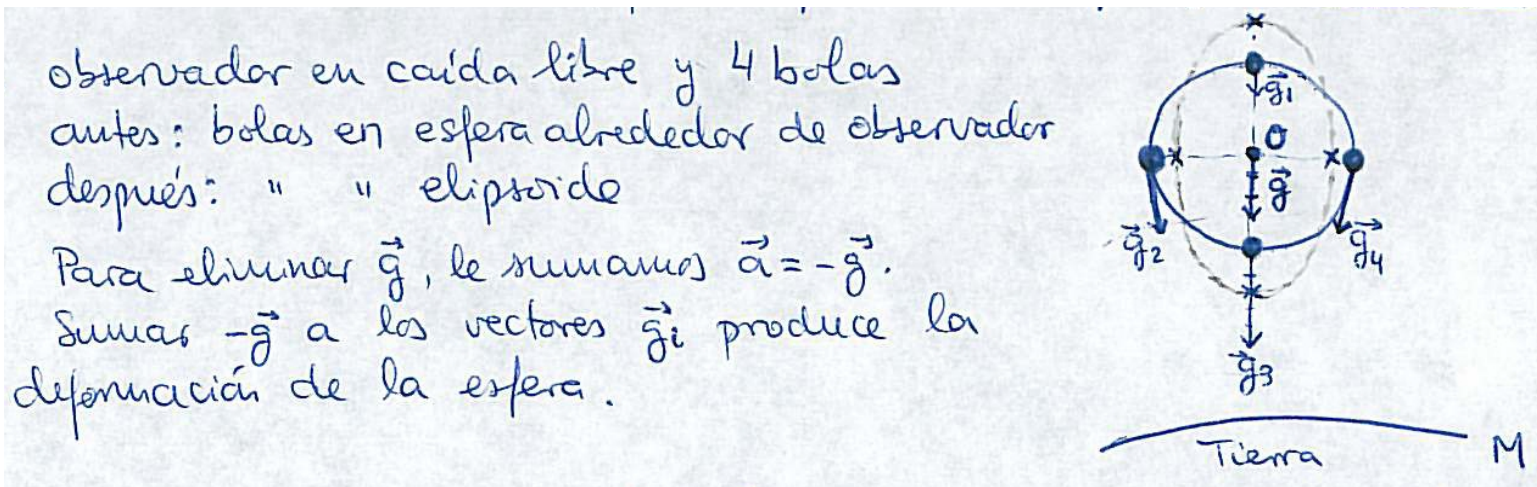 observador en caída libre y 4 bolas
antes: bolas en esfera alrededor de observador
después: " " elipsoide
Para eliminar g⃗, le sumamos a⃗ = -g⃗.
Sumar -g⃗ a los vectores g⃗i produce la
deformación de la esfera.
g⃗1
O
g⃗
g⃗2
g⃗4
g⃗3
Tierra M